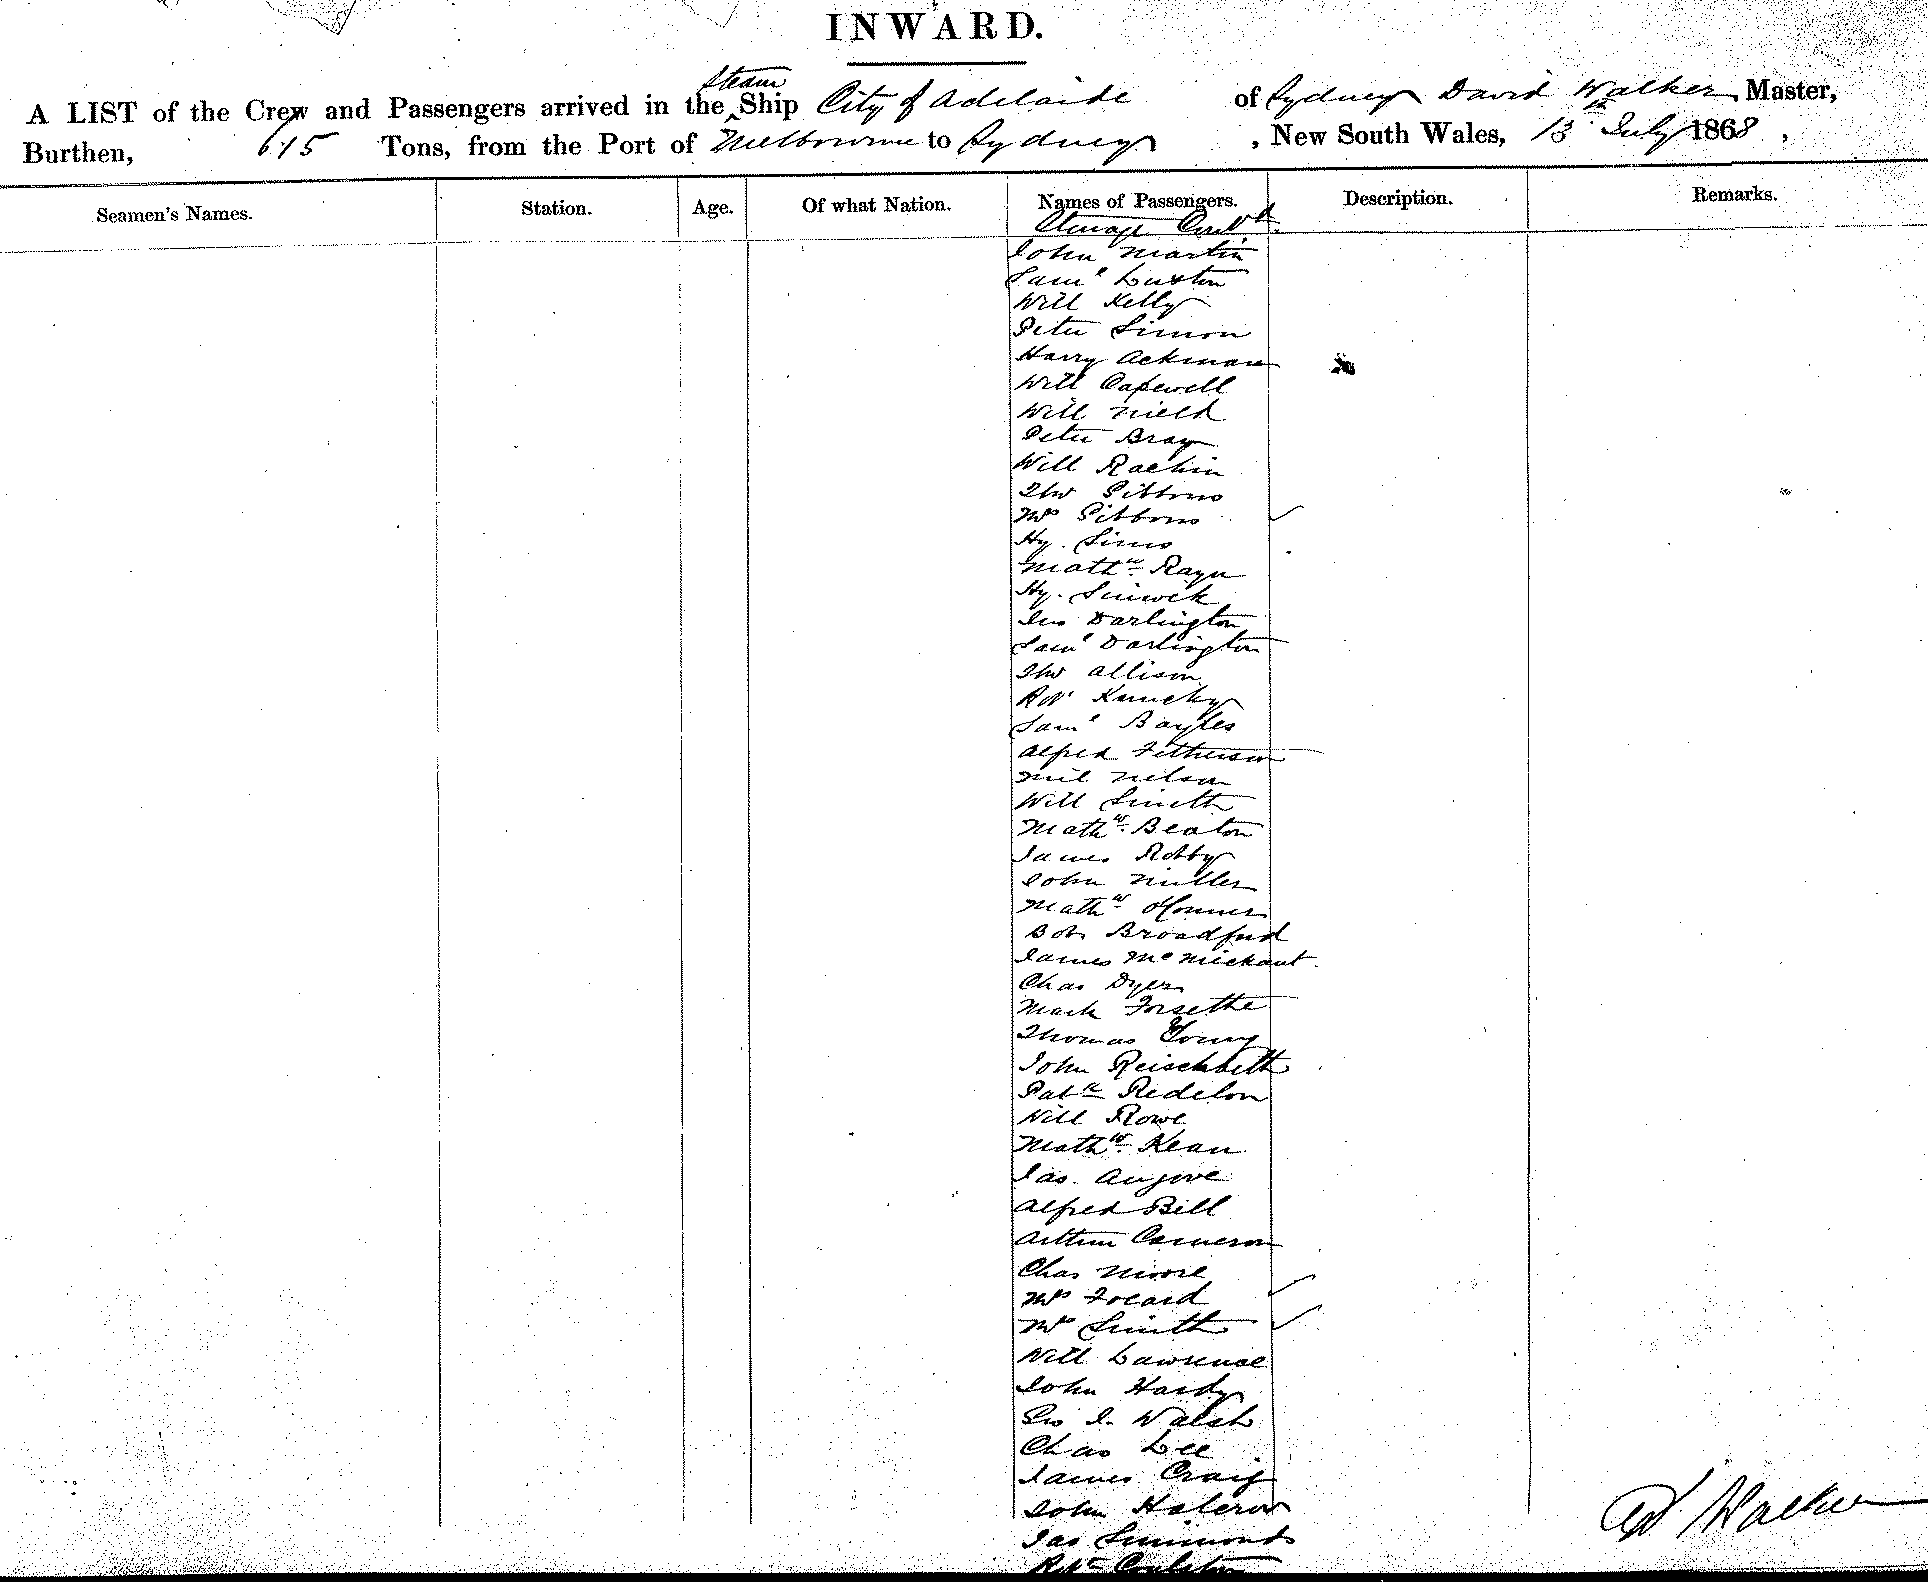 INWARD.
Steam
A LIST of the Crew and Passengers arrived in the Ship City of Adelaide of Sydney David Walker, Master,
Burthen, 615 Tons, from the Port of Melbourne to Sydney, New South Wales, 13th July 1868,
Seamen's Names. Station. Age. Of what Nation. Names of Passengers. Description. Remarks.
Steerage Contd
John Martin
Saml Luxton
Will Kelly
Peter Simon
Harry Ackman
Will Capewell
Will Nield
Peter Bray
Will
Tho Gibbons
Mrs Gibbons
Hy. Sims
Mathw.
Hy.
Jno Darlington
Saml Darlington
Tho Allison
Robt
Saml Bayles
Alfred
Neil Nelson
Will Smith
Mathw. Beaton
James Robby
John Miller
Mathw. OConner
Bob Broadford
James
Chas Dyer
Mark Forsethe
Thomas Young
John Reischbeth
Patk Redelon
Will Rowe
Mathw. Kean
Jas. Angove
Alfred Bill
Arthur Cameron
Chas Moore
Mrs
Mrs Smith
Will Lawrence
John Hardy
Geo J. Walsh
Chas Lee
James Craig
John Halcrow
Jas Simmonds
Robt
Walker